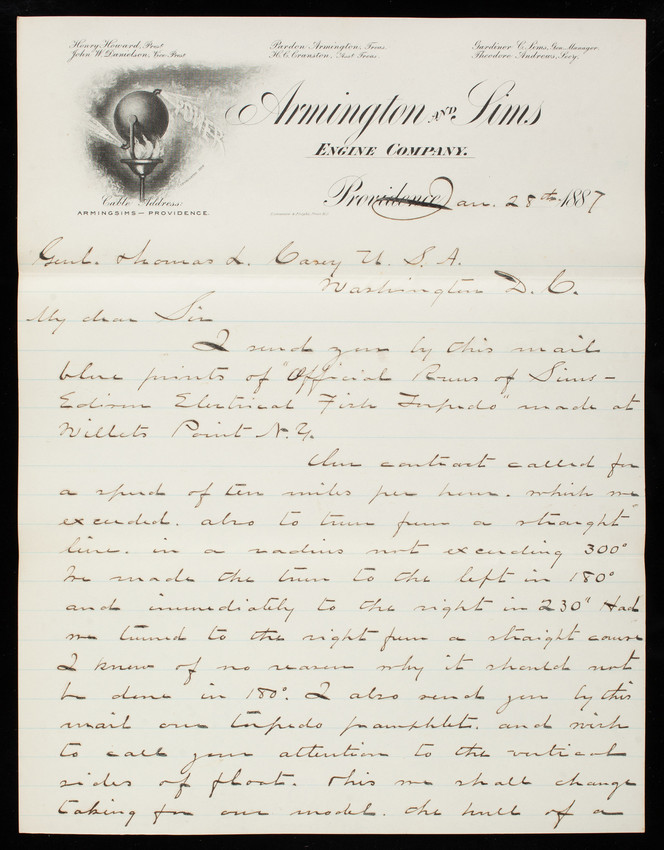 Henry Howard, Prest.
John W. Danielson, Vice Prest.
Pardon Armington, Treas.
H. C. Cranston, Asst Treas.
Gardiner C. Sims, Gen. Manager.
Theodore Andrews, Secy.
Armington AND Sims
ENGINE COMPANY.
Cable Address:
ARMINGSIMS — PROVIDENCE.
Providence, Jan. 28th 1887
Genl. Thomas L. Casey U. S. A.
Washington D. C.
My dear Sir
I send you by this mail
blue prints of "Official Runs of Sims-
Edison Electrical Fish Torpedo" made at
Willets Point N.Y.
Our contract called for
a speed of ten miles per hour. which we
exceeded. also to turn from a straight
line. in a radius not exceeding 300°
We made the turn to the left in 180°
and immediately to the right in 230° Had
we turned to the right from a straight course
I know of no reason why it should not
be done in 180°. I also send you by this
mail our torpedo pamphlet. and wish
to call your attention to the vertical
sides of float. This we shall change
taking for our model. the hull of a